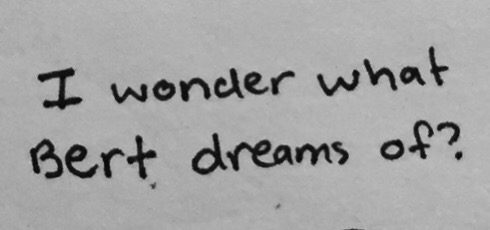 I wonder what
Bert dreams of?